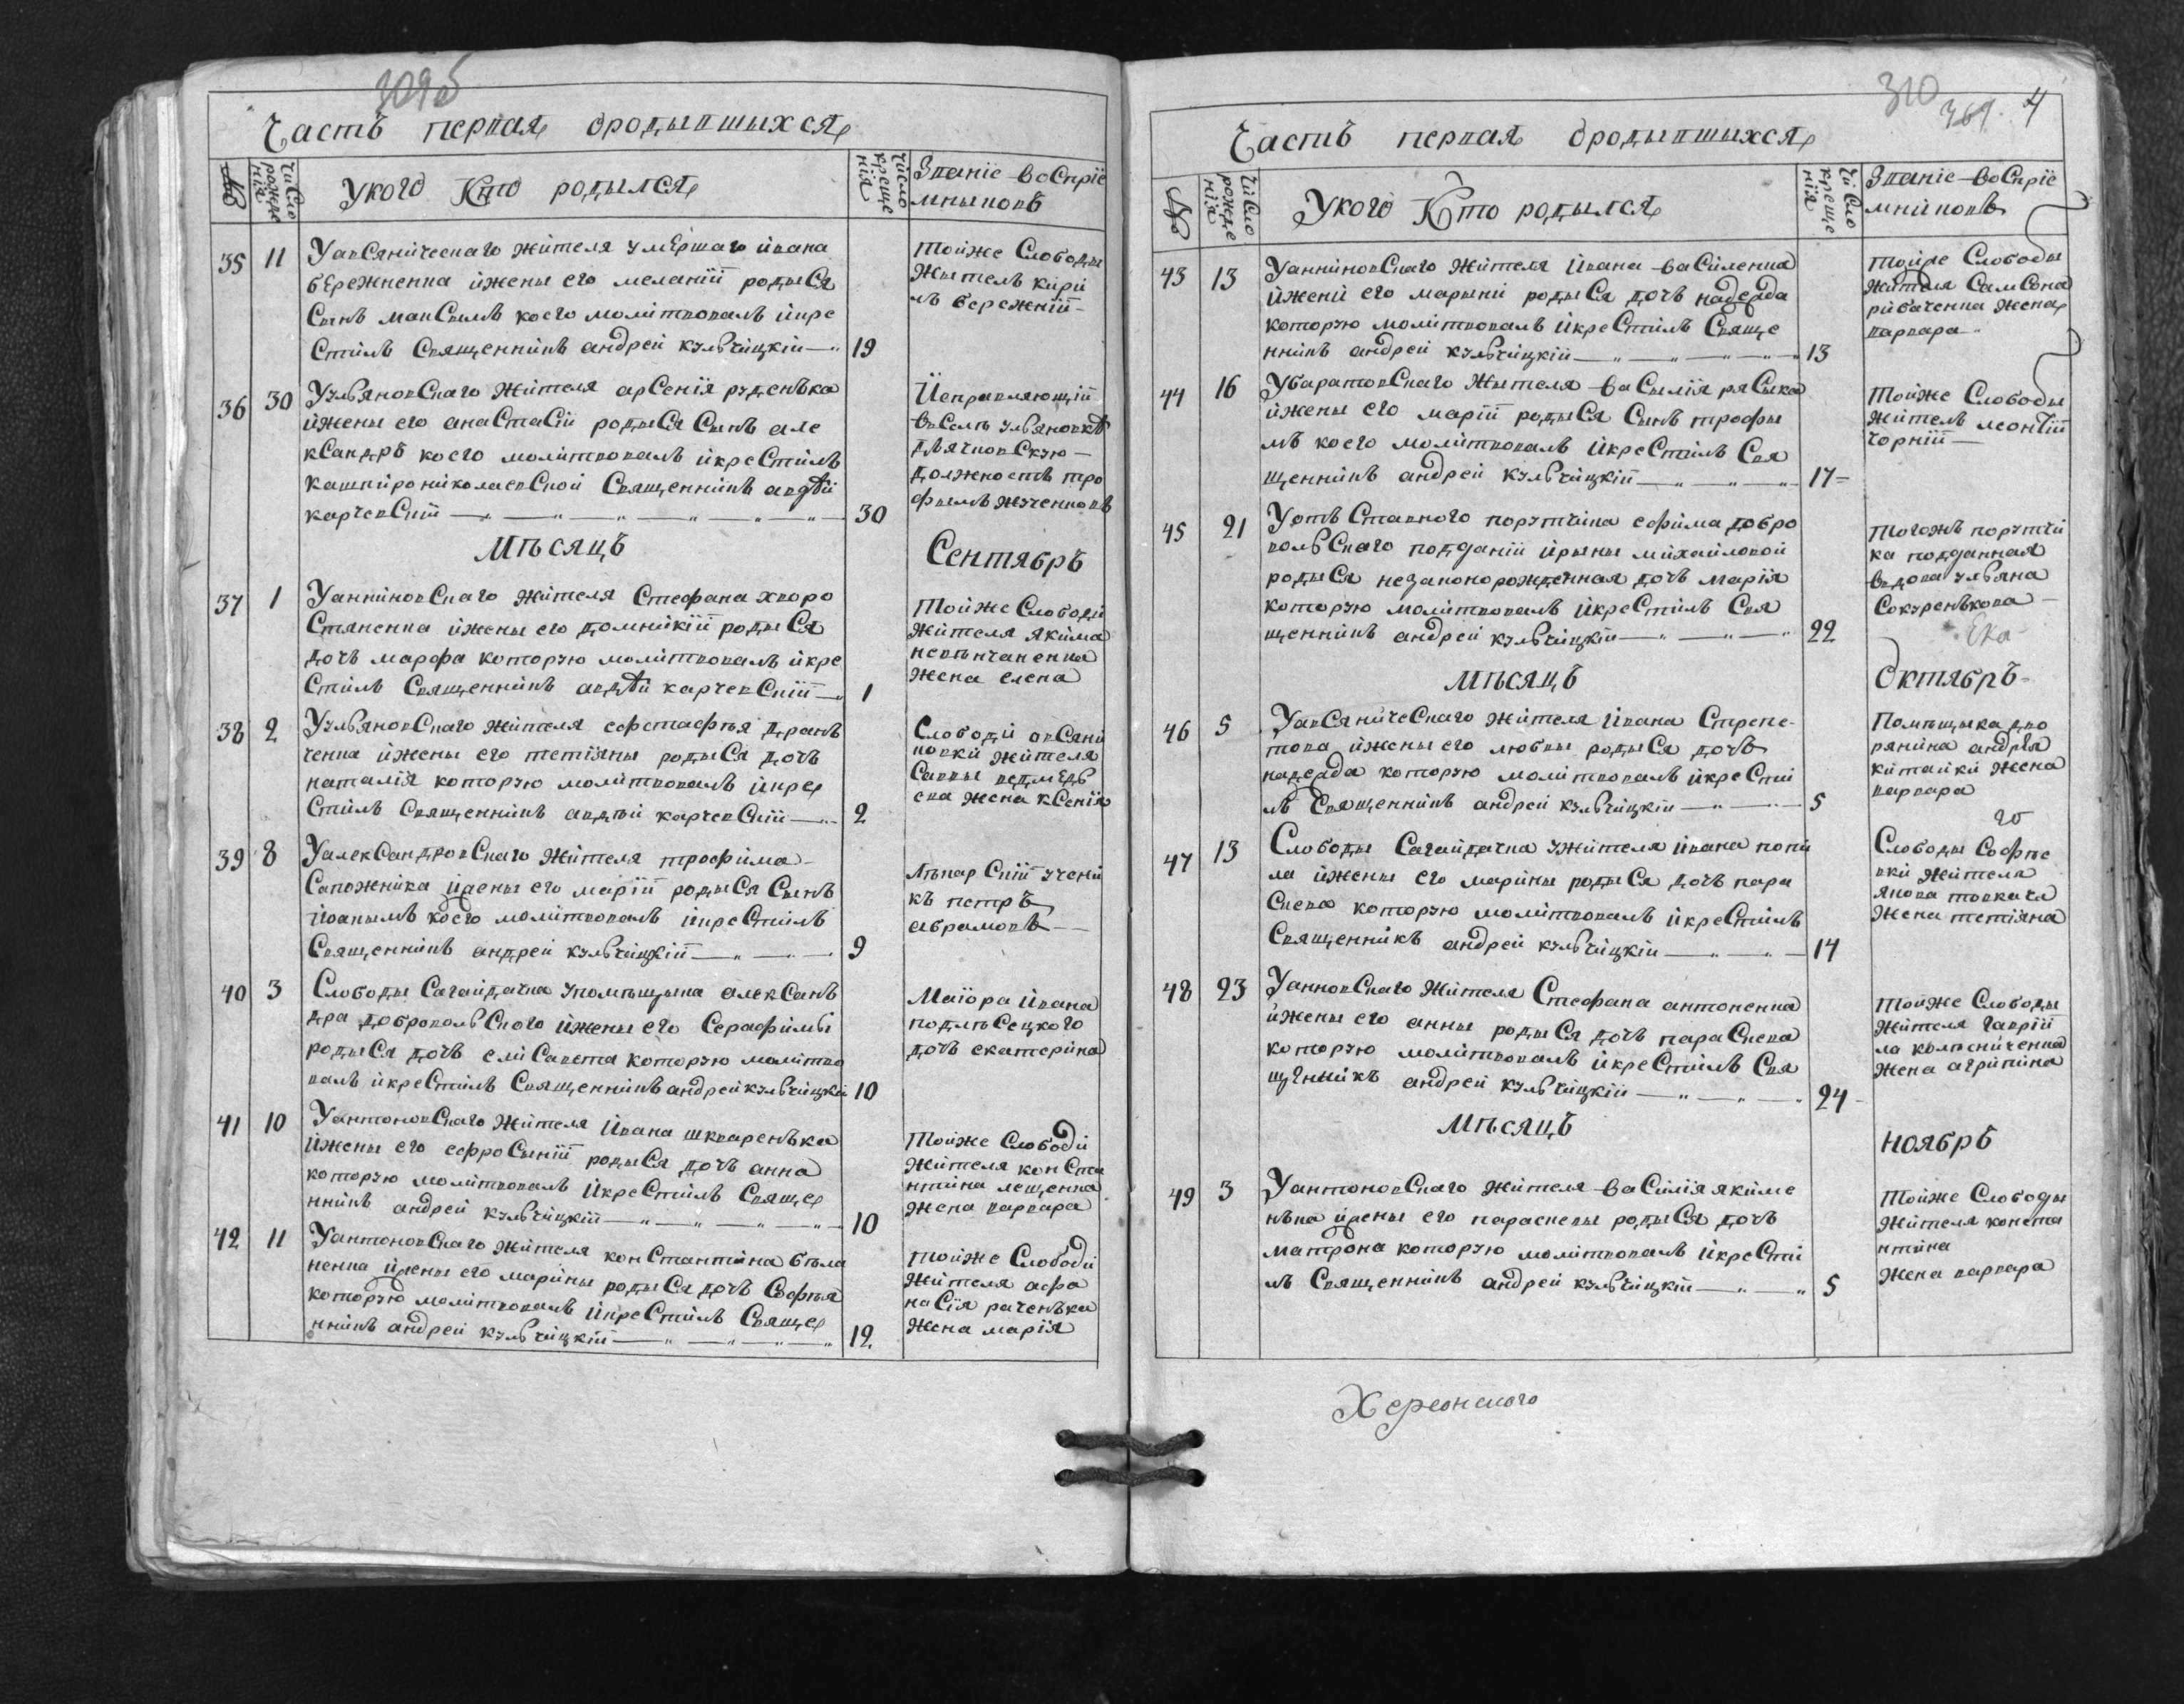 309б
Часть первая ородывшыхся
№
Число рожде нія
Укого Кто родылся
Число креще нія
Званіе воспріе
мныковъ
35 11 Уавсяническаго жителя умершаго ивана
бережненка ижены его меланіи родыся
сынъ максымъ коего молитвовалъ икре
стилъ священникъ андрей кульчицкій 19
тойже слободы
жытель кири
лъ бережній
36 30 Уульяновскаго жителя арсенія руденька
ижены его анастасіи родыся сынъ але
ксандръ коего молитвовалъ икрестилъ
кашпиро николаевской священникъ авдѣй
карчевскій 30
Исправляющій
въселѣ ульяновкѣ
дьячковскую
должность тро
фымъ
мѣсяцъ Сентябрь
37 1 Уаннинскаго жителя Стефана хворо
стяненка ижены его домникіи родыся
дочь марфа которую молитвовалъ икре
стилъ священникъ авдѣй карчевскій 1
тойже слободи
жителя якима
невѣнчаненка
жена елена
38 2 Уульяновскаго жителя ефстафья дран
ченка ижены его тетіяны родыся дочь
наталія которую молитвовалъ икре
стилъ священникъ авдѣй карчевскій 2
слободи авсяни
ковки жителя
саввы ведмедь
ева жена ксенія
39 8 Уалександровскаго жителя трофима
сапожника ижены его маріи родыся сынъ
іоанымъ коего молитвовалъ икрестилъ
священникъ андрей кульчицкій 9
лѣкарскій учени
къ петръ
абрамовъ
40 3 Слободы Сагайдачка упомѣщыка алексан
дра добровольского ижены его Серафимы
родыся дочь елисавета которую молитво
валъ икрестилъ священникъ андрей кульчицкій 10
Маіора ивана
подлѣсецкого
дочь екатерина
41 10 Уантоновскаго жителя ивана шкваренька
ижены его ефросыніи родыся дочь анна
которую молитвовалъ икрестилъ священ
никъ андрей кульчицкій 10
тойже слободи
жителя конста
нтина лещенка
жена варвара
42 11 Уантоновскаго жителя константина бѣла
ненка ижены его марины родыся дочь софья
которую молитвовалъ икрестилъ свяще
нникъ андрей кульчицкій 12.
тойже слободи
жителя афа
насія раченька
жена марія
310
369. 4
Часть первая ородывшихся
№
Число рожде нія
Укого Кто родылся
Число креще нія
Званіе воспріе
мниковъ
43 13 Уаннинскаго жителя ивана василенка
ижени его марыни родыся дочь надежда
которую молитвовалъ икрестилъ свяще
нникъ андрей кульчицкій 13
тойже слободы
жителя самсона
рибаченка жена
варвара
44 16 Убаратовскаго жытеля васылія рясыка
ижены его маріи родыся сынъ трофы
мъ коего молитвовалъ икрестилъ свя
щенникъ андрей кульчицкій 17
тойже слободы
житель леонтій
чорній
45 21 Уотъставного порутчика ефима добро
вольскаго подданій ирыны михайловой
родыся незаконорожденная дочь марія
которую молитвовалъ икрестилъ свя
щенникъ андрей кульчицкій 22
тогожъ порутчи
ка подданная
вдова ульяна
сокуренькова
Ека
мѣсяцъ Октябрь
46 5 Уавсяническаго жителя ивана стрепе
това ижены его любвы родыся дочь
надежда которую молитвовалъ икрести
лъ священникъ андрей кульчицкій 5
помѣщыка дво
рянина андрѣя
китайки жена
варвара
го
47 13 Слободы Сагайдачка ужителя ивана попи
ла ижены его марины родыся дочь пара
скева которую молитвовалъ икрестилъ
священникъ андрей кульчицкій 14
слободы софіе
вки жителя
якова товкача
жена тетіяна
48 23 Уанновскаго жителя Стефана антоненка
ижены его анны родыся дочь параскева
которую молитвовалъ икрестилъ свя
щеныкъ андрей кульчицкій 24
тойже слободы
жителя гаврій
ла колѣсниченка
жена агрипина
мѣсяцъ ноябрь
49 3 Уантоновскаго жителя василія якиме
нька ижены его параскевы родыся дочь
матрона которую молитвовалъ икрести
лъ священникъ андрей кульчицкій 5
тойже слободы
жителя конста
нтина
жена варвара
Херсонского